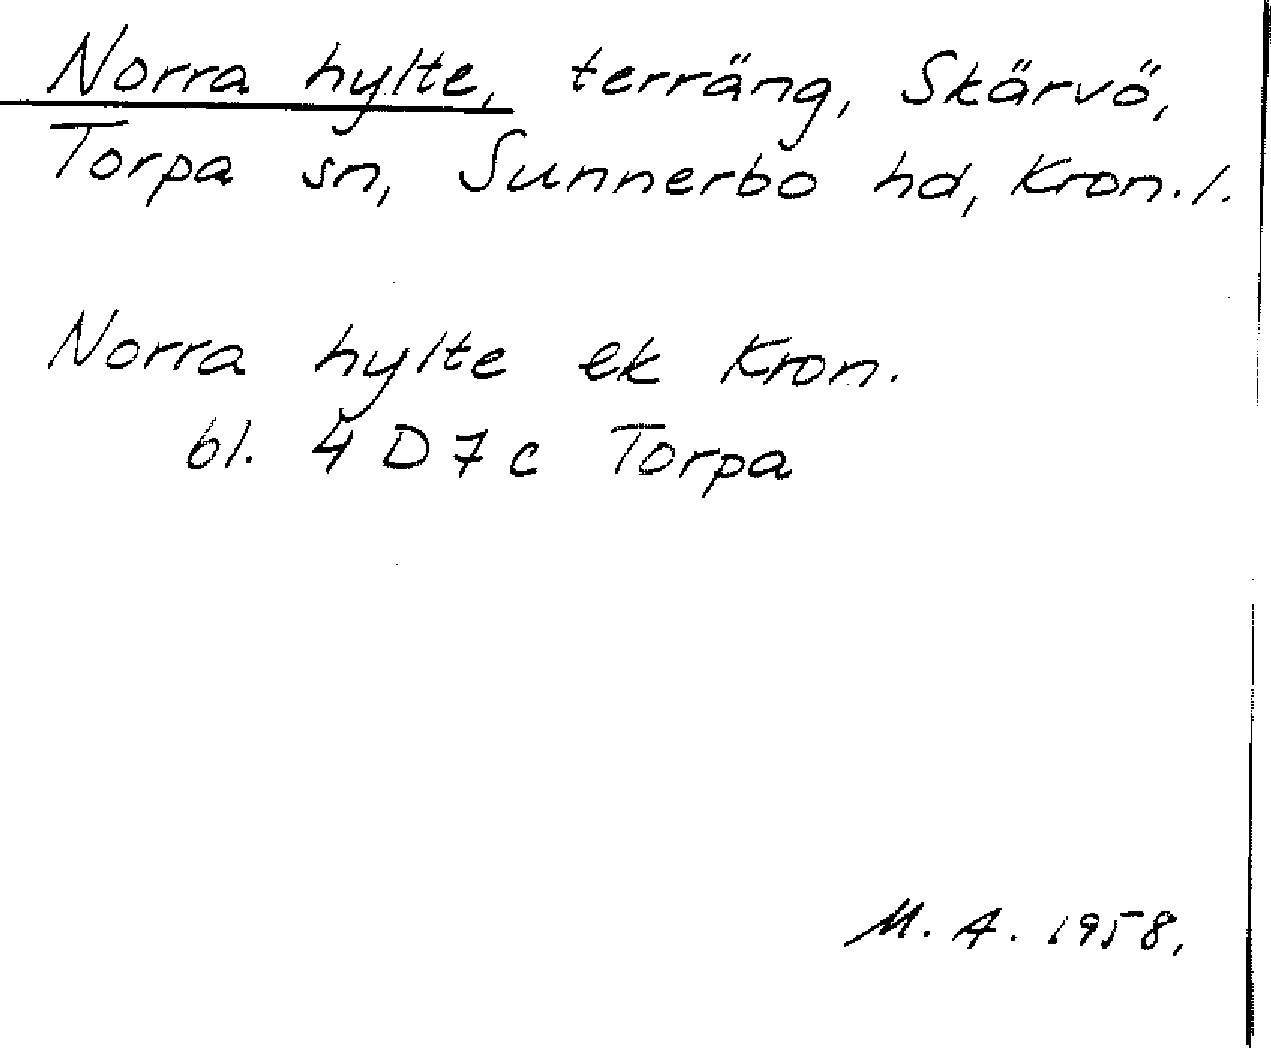 Norra hylte, terräng, Skärvö,
Torpa sn, Sunnerbo hd, Kron.l.
Norra hylte ek Kron.
bl. 4 D 7 c Torpa
M. A. 1958.